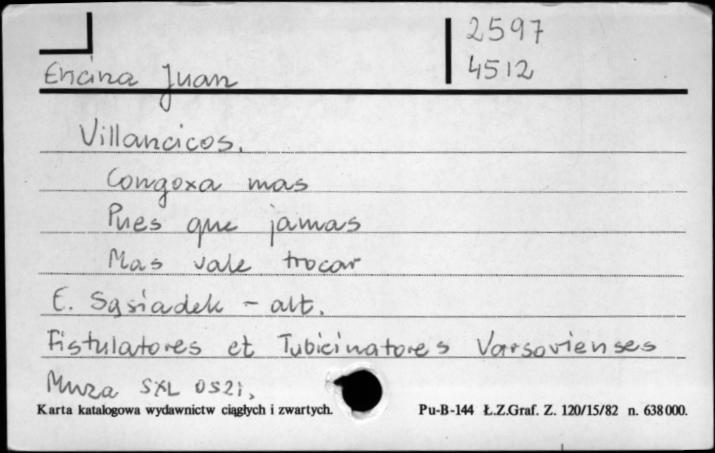 2597
4512
Encina Juan
Villancicos.
Congoxa mas
Pues que jamas
Mas vale trocar
E. Sąsiadek - alt.
Fistulatores et Tubicinatores Varsovienses
Muza SXL 0521.
Karta katalogowa wydawnictw ciągłych i zwartych. Pu-B-144 Ł.Z.Graf. Z. 120/15/82 n. 638000.